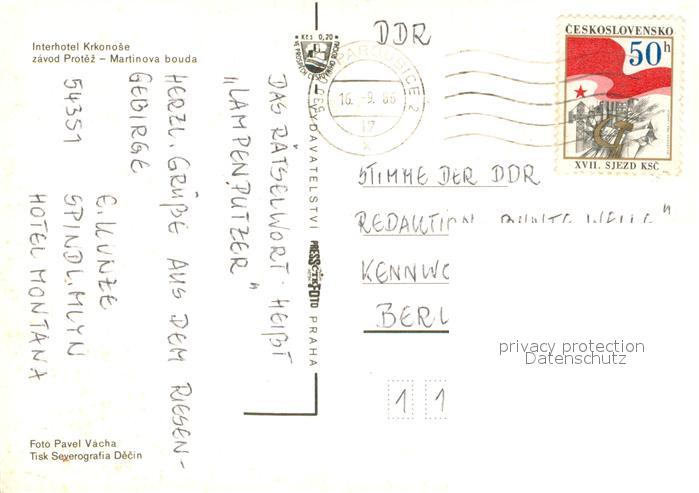 Interhotel Krkonoše
závod Protěž – Martinova bouda
DAS RÄTSELWORT HEIßT
„LAMPENPUTZER"
HERZL. GRÜßE AUS DEM RIESEN-
GEBIRGE
E. KUNZE
54351 SPINDL. MLYN
HOTEL MONTANA
Foto Pavel Vácha
Tisk Severografia Děčín
Kčs 0,20
VYDAVATELSTVÍ PRESSFOTO PRAHA
DDR
PARDUBICE 2
16.-9.86
17
x
ČESKOSLOVENSKO
50h
XVII. SJEZD KSČ
STIMME DER DDR
REDAKTION
BERL
1 1
privacy protection
Datenschutz